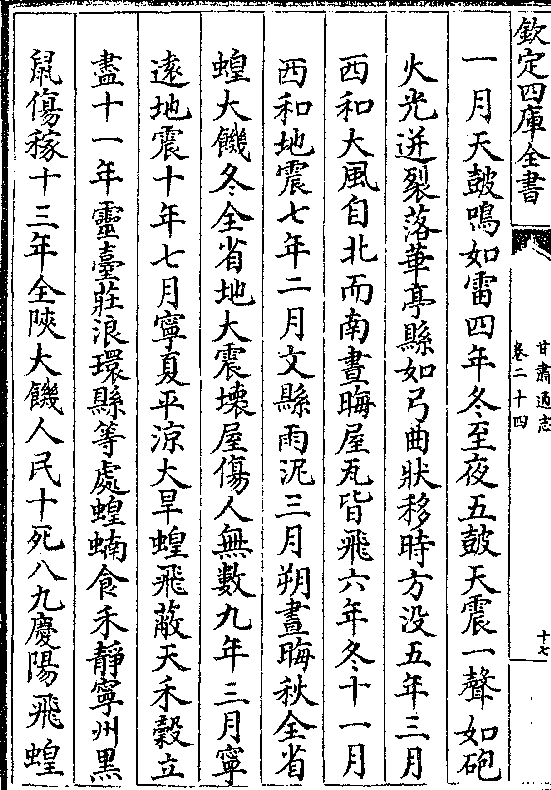 欽定四庫全書
甘肅通志
卷二十四
十七
一月天鼓鳴如雷四年冬至夜五鼓天震一聲如砲
火光迸裂落華亭縣如弓曲狀移時方没五年三月
西和大風自北而南晝晦屋瓦皆飛六年冬十一月
西和地震七年二月文縣雨泥三月朔晝晦秋全省
蝗大饑冬全省地大震壞屋傷人無數九年三月寧
逺地震十年七月寧夏平涼大旱蝗飛蔽天禾穀立
盡十一年靈臺莊浪環縣等處蝗蝻食禾靜寧州黒
鼠傷稼十三年全陜大饑人民十死八九慶陽飛蝗